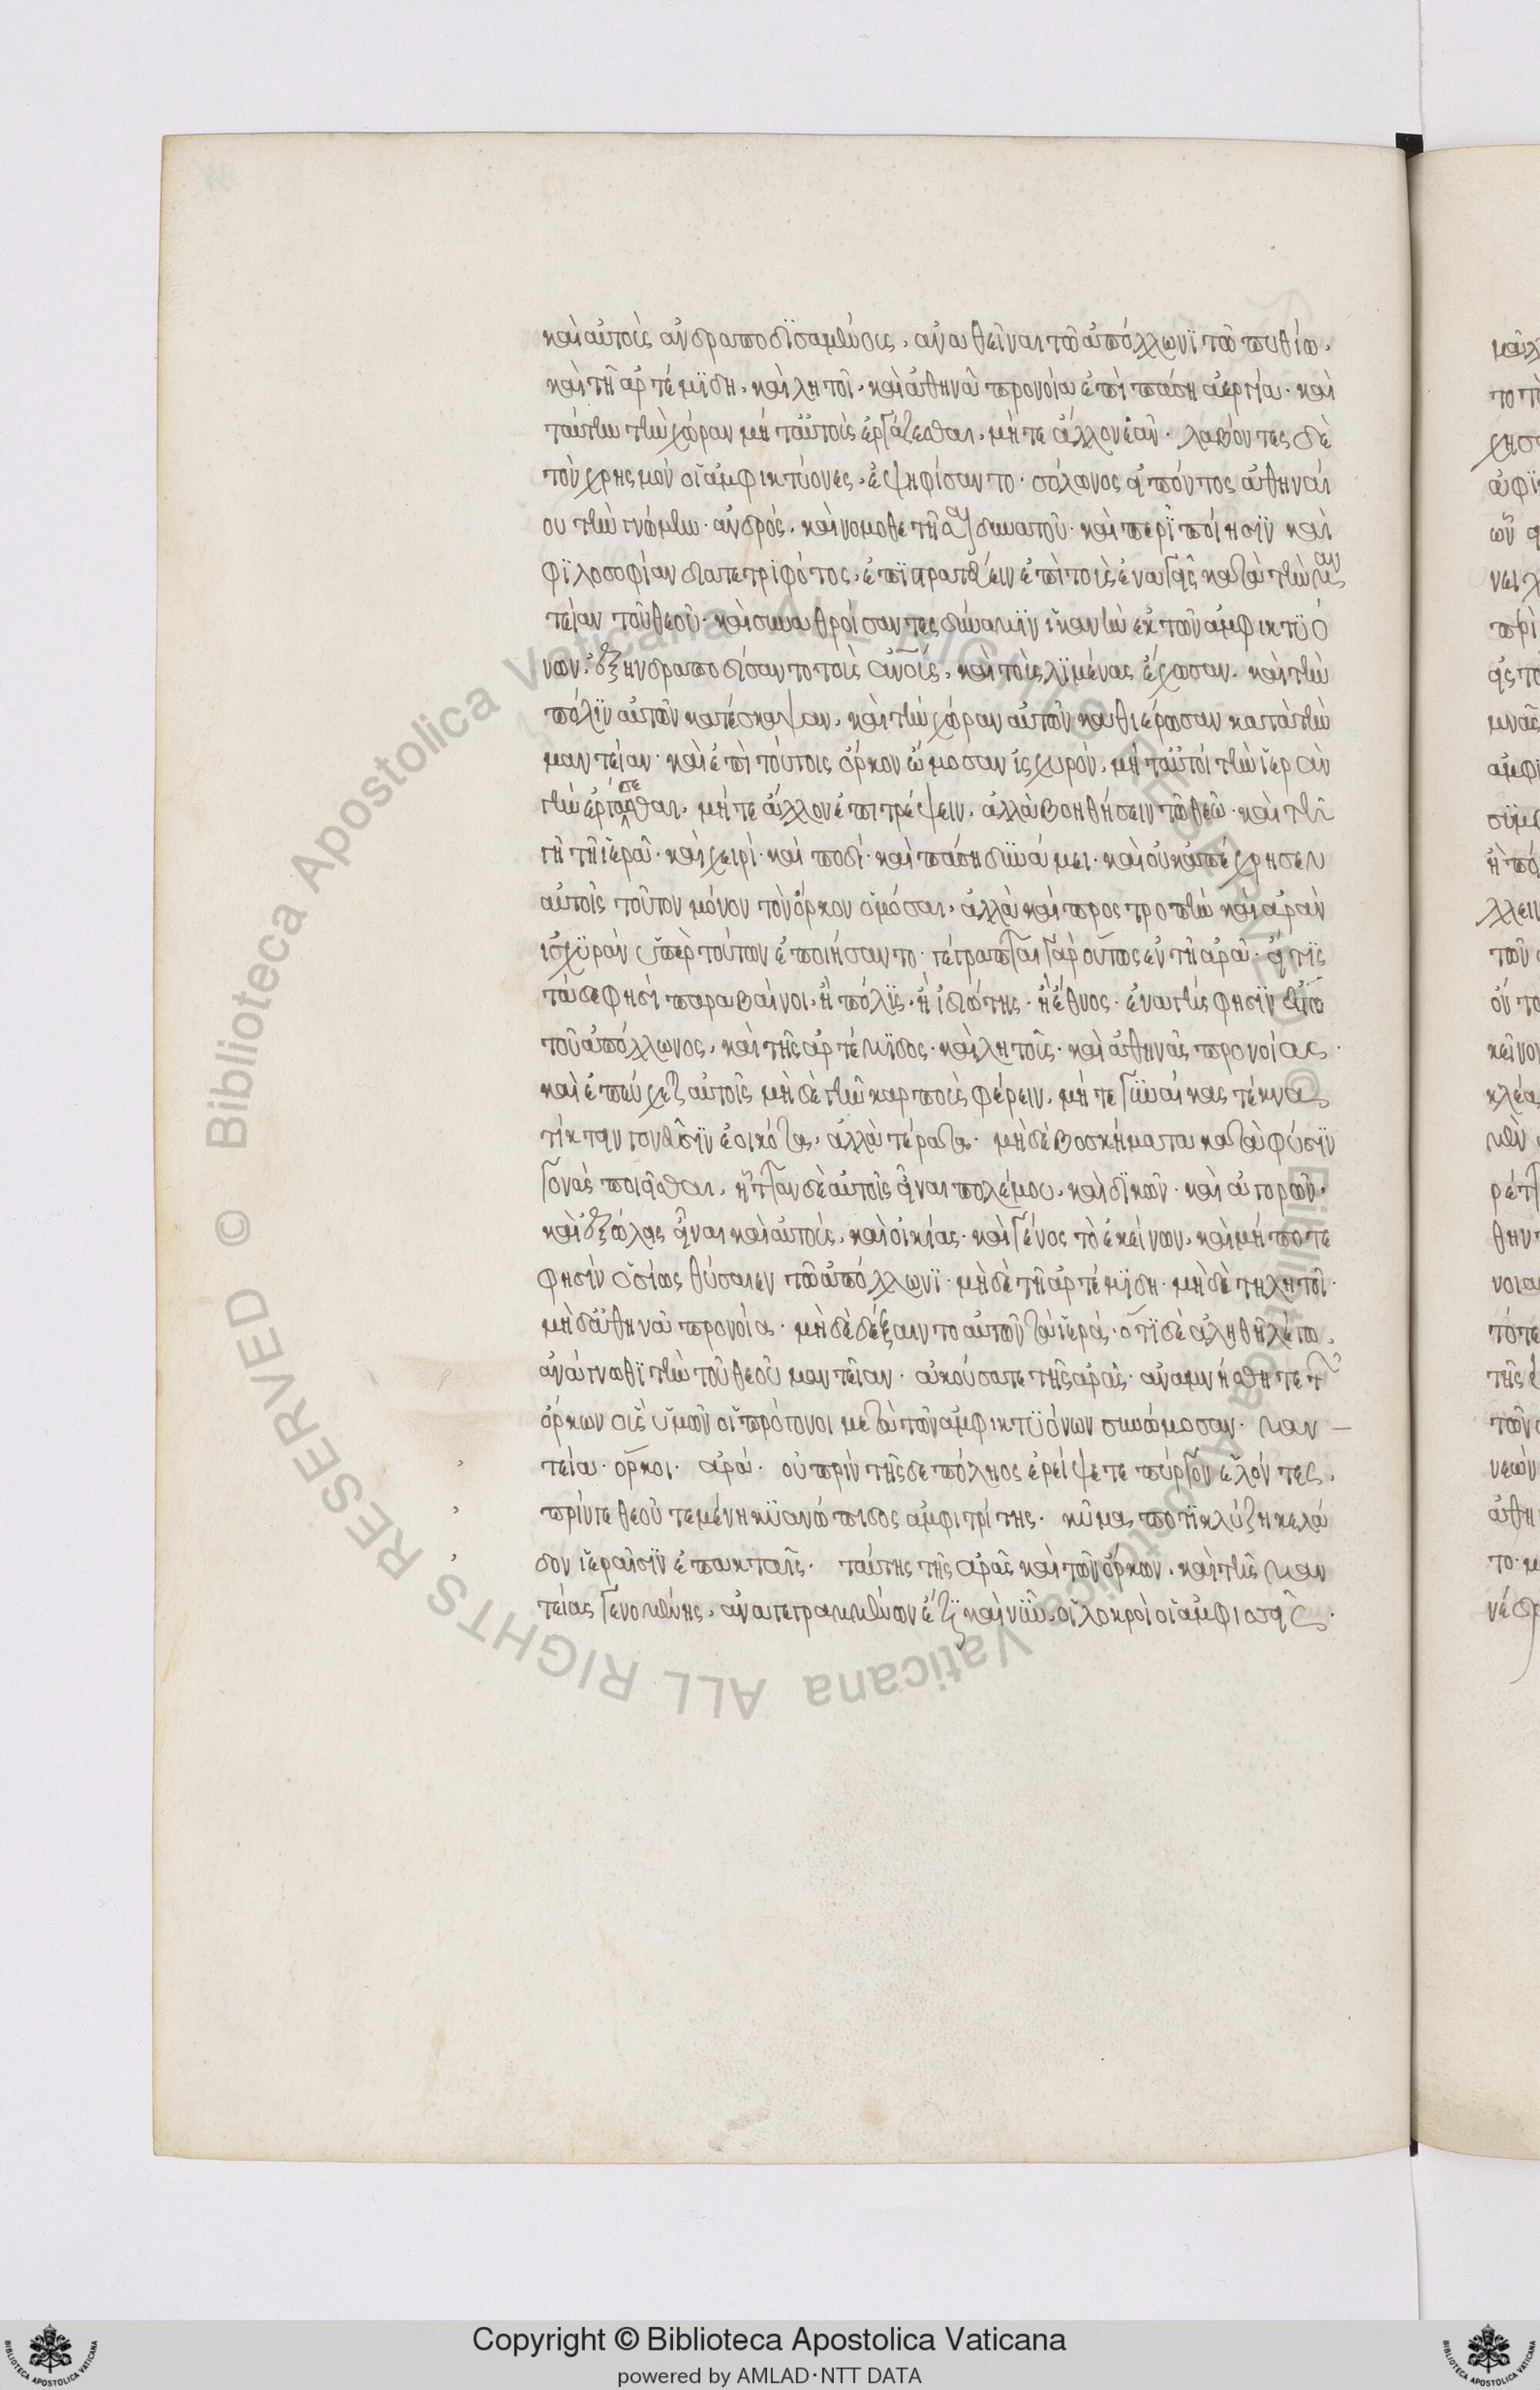 καὶ αὐτοὺς ἀνδραποδϊσαμένους, ἀναθεῖναι τῶ ἀπόλλωνϊ τῶ πυθίω,
καὶ τῆ ἀρτέμϊδη, καὶ λητοῖ, καὶ ἀθηνᾶ προνοία ἐπὶ πάση ἀεργία· καὶ
ταύτην τὴν χώραν μήτ' αὐτοὺς ἐργάζεσθαι, μήτε ἄλλον ἐᾶν· λαβόντες δὲ
τὸν χρησμὸν οἱ ἀμφικτύονες, ἐψηφίσαντο· σόλωνος εἰπόντος ἀθηναί
ου τὴν γνώμην· ἀνδρὸς, καὶ νομοθετῆσαι δυνατοῦ· καὶ περὶ ποίησϊν καὶ
φϊλοσοφίαν διατετριφότος, ἐπϊστρατεύειν ἐπὶ τοὺς ἐναγεῖς κατὰ τὴν μαν
τείαν τοῦ θεοῦ· καὶ συναθροίσαντες δύναμϊν ἱκανὴν ἐκ τῶν ἀμφικτϋό
νων, ἐξηνδραποδίσαντο τοὺς ἀνους, καὶ τοὺς λϊμένας ἔχωσαν, καὶ τὴν
πόλϊν αὐτῶν κατέσκαψαν, καὶ τὴν χώραν αὐτῶν καθιέρωσαν κατὰ τὴν
μαντείαν· καὶ ἐπὶ τούτοις ὅρκον ὤμοσαν ἰσχυρὸν, μήτ' αὐτοὶ τὴν ἱερὰν
γῆν ἐργάσεσθαι, μήτε ἄλλον ἐπιτρέψειν, ἀλλὰ βοηθήσειν τῶ θεῶ· καὶ τῆ
γῆ τῆ ἱερᾶ· καὶ χειρὶ· καὶ ποδὶ· καὶ πάση δϋνάμει· καὶ οὐκ ἀπέχρησεν
αὐτοῖς τοῦτον μόνον τὸν ὅρκον ὀμόσαι, ἀλλὰ καὶ προστροπὴν καὶ ἀρὰν
ἰσχϋρὰν ὑπὲρ τούτων ἐποιήσαντο· γέγραπται γὰρ οὕτως ἐν τῆ ἀρᾶ· εἴ τϊς
τάδε φησὶ παραβαίνοι, ἢ πόλϊς, ἢ ἰδιώτης· ἢ ἔθνος· ἐναγὴς φησϊν ἔστω
τοῦ ἀπόλλωνος, καὶ τῆς ἀρτέμϊδος· καὶ λητοῦς· καὶ ἀθηνᾶς προνοίας·
καὶ ἐπεύχεται αὐτοῖς μηδὲ γῆν καρποὺς φέρειν, μήτε γϋναίκας τέκνα
τίκτειν γονεῦσϊν ἐοικότα, ἀλλὰ τέρατα· μηδὲ βοσκήματα κατὰ φύσϊν
γονὰς ποιεῖσθαι, ἧτταν δὲ αὐτοῖς εἶναι πολέμου, καὶ δϊκῶν· καὶ ἀγορῶν·
καὶ ἐξώλας εἶναι καὶ αὐτοὺς, καὶ οἰκίας· καὶ γένος τὸ ἐκείνων, καὶ μήποτε
φησὶν ὁσίως θύσαιεν τῶ ἀπόλλωνϊ· μηδὲ τῆ ἀρτέμϊδη· μηδὲ τῆ λητοῖ·
μηδ' ἀθηνᾶ προνοία· μηδὲ δέξαιντο αὐτῶν τὰ ἱερά· ὅτϊ δὲ ἀληθῆ λέγω,
ἀνάγνωθϊ τὴν τοῦ θεοῦ μαντείαν· ἀκούσατε τῆς ἀρᾶς· ἀναμνήσθητε τῶν
ὅρκων οὓς ὑμῶν οἱ πρόγονοι μετὰ τῶν ἀμφικτϋόνων συνώμοσαν· μαν
τεία· ὅρκοι· ἀρά· οὐ πρὶν τῆσδε πόληος ἐρείψετε πύργον ἑλόντες,
πρίν γε θεοῦ τεμένη κϋανώπιδος ἀμφιτρίτης· κῦμα, ποτϊκλύζη κελά
δον ἱεραῖσϊν ἐπ' ακταῖς· ταύτης τῆς ἀρᾶς καὶ τῶν ὅρκων, καὶ τῆς μαν
τείας γενομένης, ἀναγεγραμμένων ἔτϊ καὶ νῦν, οἱ λοκροὶ οἱ ἀμφισσεῖς·